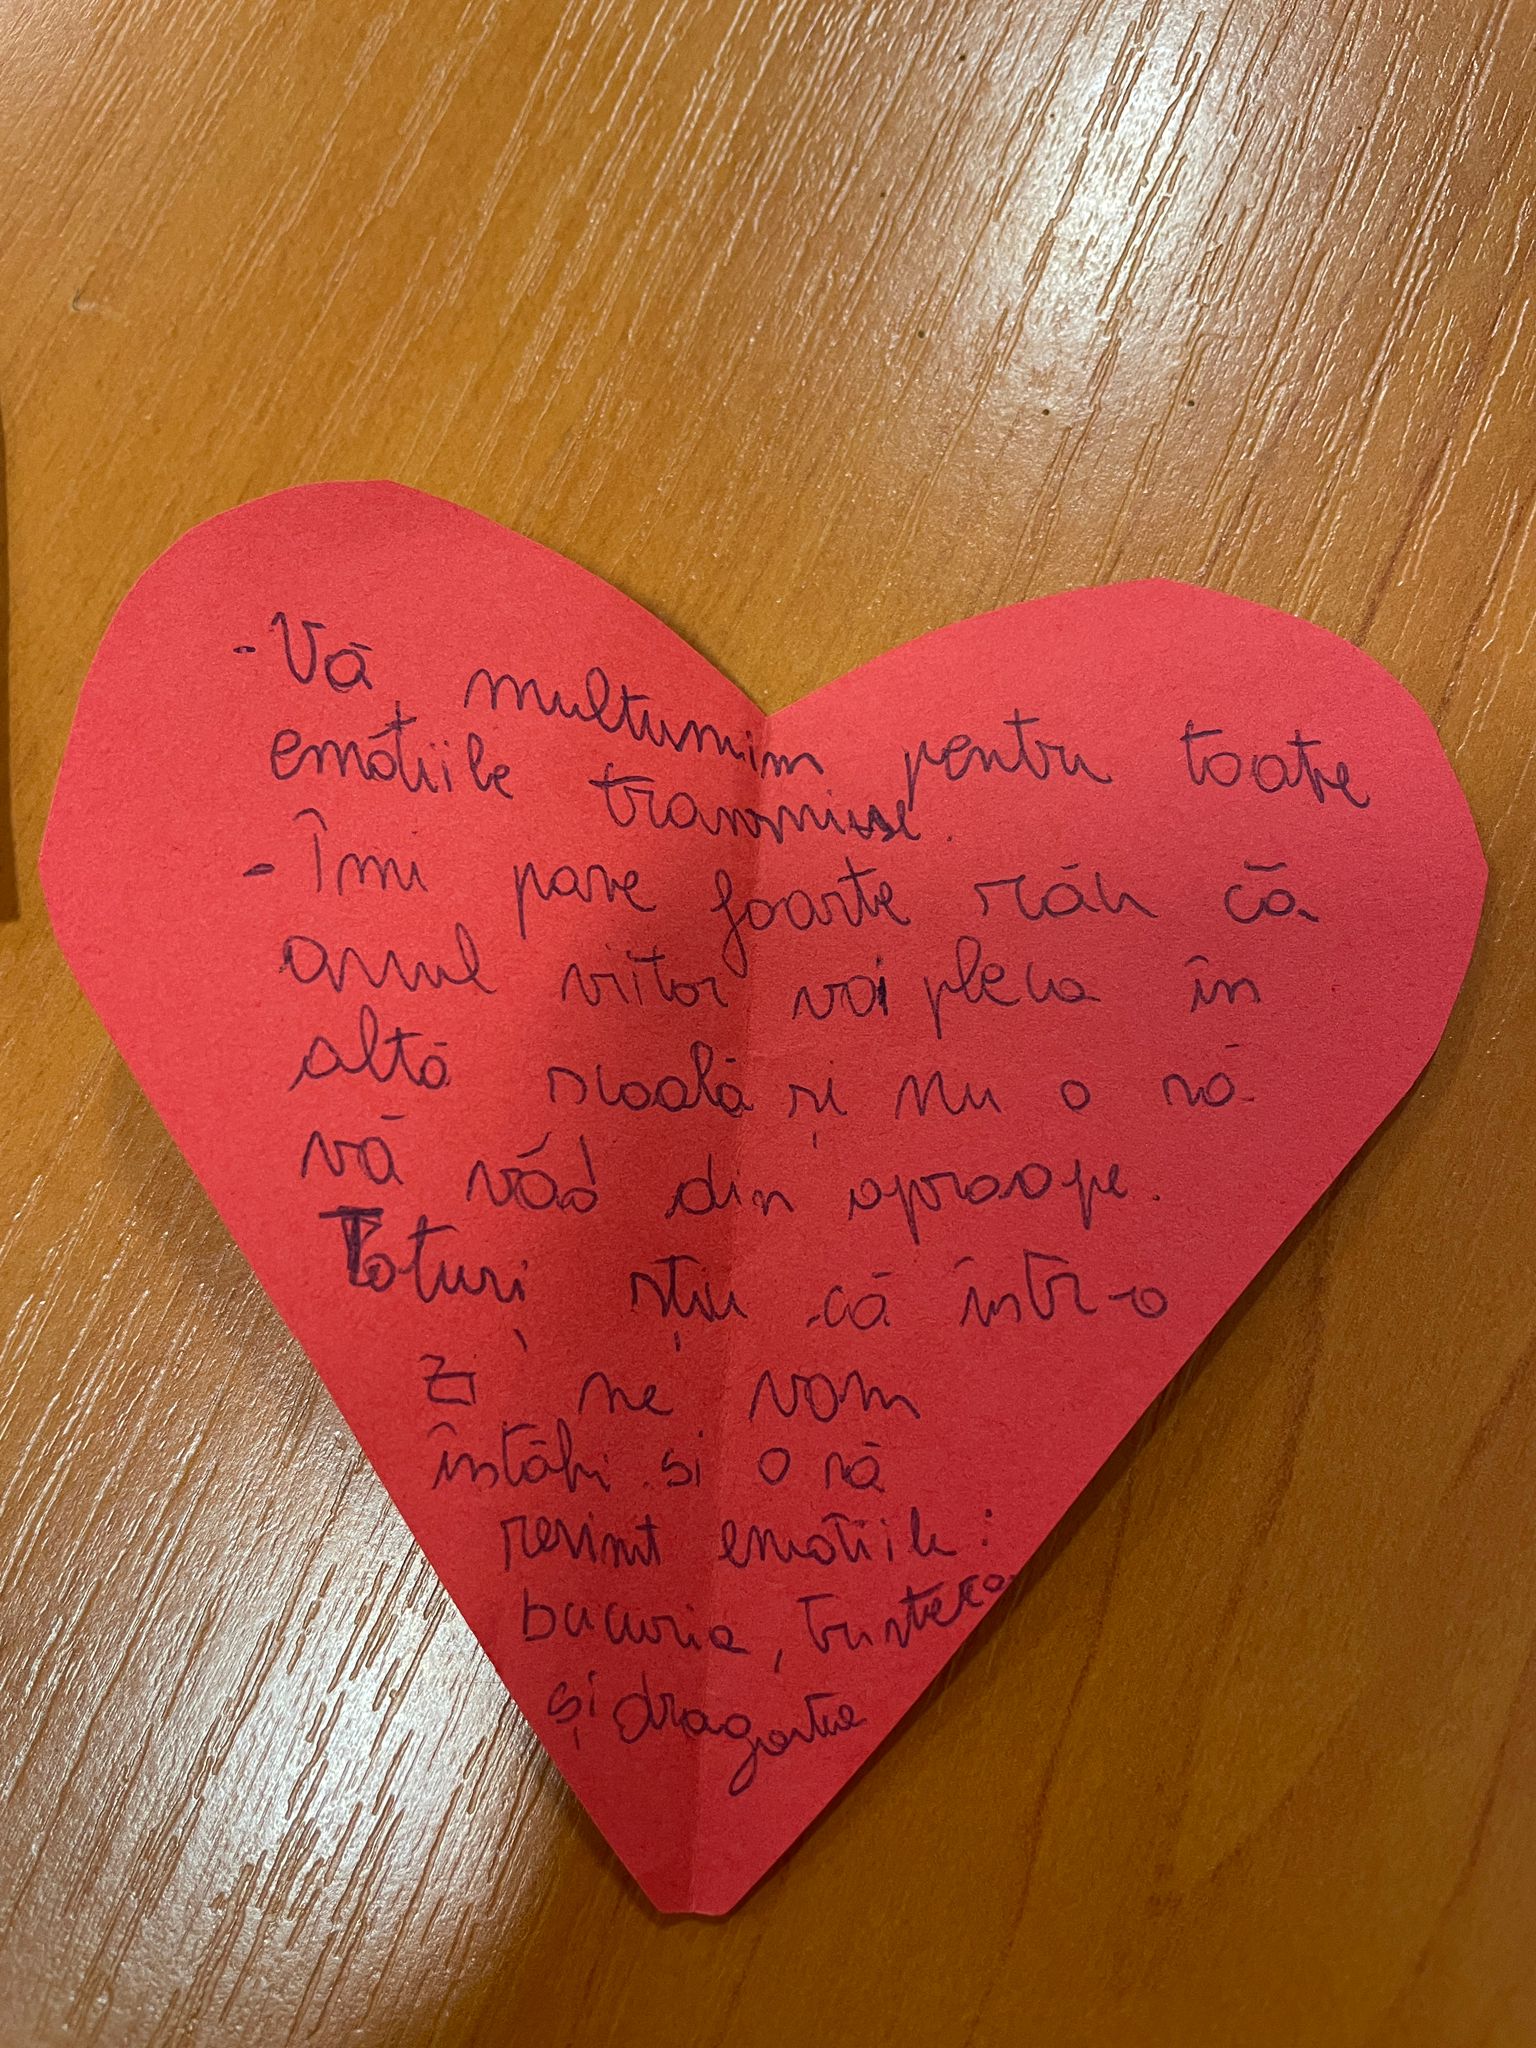 - Vă multumim pentru toate
emoțiile transmise.
- Îmi pare foarte rău că
anul viitor voi pleca în
altă scoală și nu o să
vă văd din aproape.
Toturi știu că într-o
zi ne vom
întâlni si o să
resimt emoțiile:
bucurie, tristețea
și dragostea